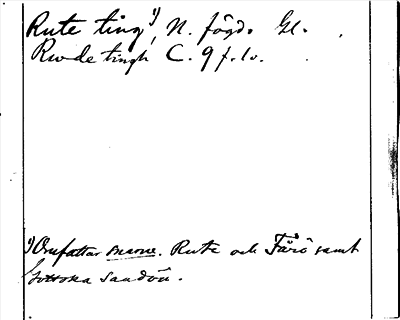 Rute ting ¹), N. fögd. Gl.
Rwde tingh C. 9 f. 1v.
¹) Omfattar snarve. Rute och Fårö samt
Gottska Sandön.